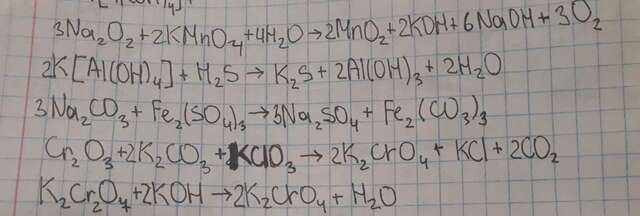 3Na₂O₂+2KMnO₄+4H₂O→2MnO₂+2KOH+6NaOH+3O₂
2K[Al(OH)₄]+H₂S→K₂S+2Al(OH)₃+2H₂O
3Na₂CO₃+Fe₂(SO₄)₃→3Na₂SO₄+Fe₂(CO₃)₃
Cr₂O₃+2K₂CO₃+KClO₃→2K₂CrO₄+KCl+2CO₂
K₂Cr₂O₄+2KOH→2K₂CrO₄+H₂O